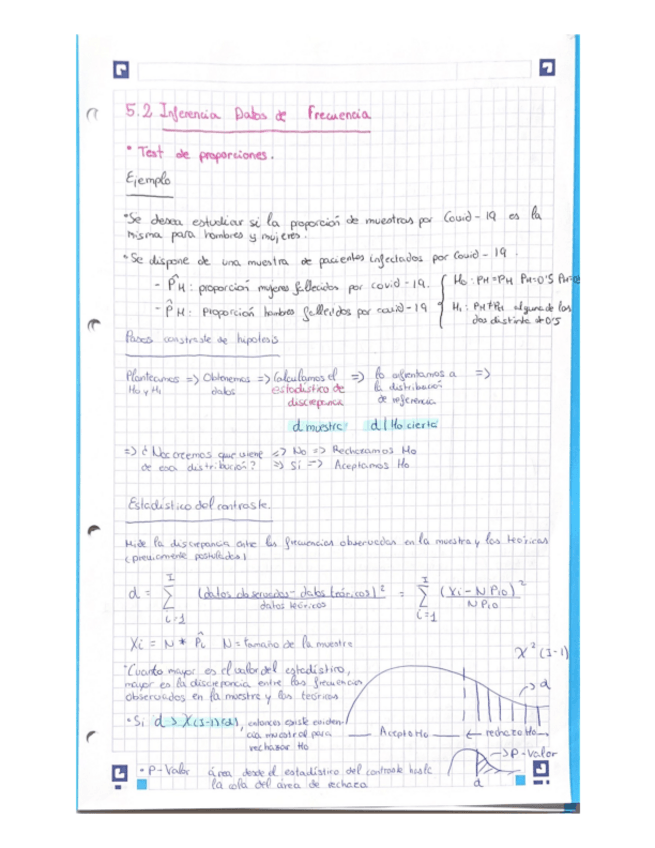 5.2 Inferencia Datos de Frecuencia
• Test de proporciones.
Ejemplo
• Se desea estudiar si la proporción de muestras por Covid-19 es la
misma para hombres y mujeres.
• Se dispone de una muestra de pacientes infectados por Covid-19.
- P̂M: proporción mujeres fallecidos por covid-19.
- P̂H: Proporción hombres fallecidos por covid-19
H0: PH=PM PH=0'5
H1: PH≠PM alguna de las
dos distinta 0'5
Pasos contraste de hipotesis
Planteamos => Obtenemos => Calculamos el => lo enfrentamos a =>
H0 y H1 datos estadístico de la distribución
discrepancia de referencia
d muestra d | H0 cierta
=> ¿Nos creemos que viene => No => Rechazamos H0
de esa distribución? => Si => Aceptamos H0
Estadístico del contraste.
Mide la discrepancia entre las frecuencias observadas en la muestra y las teóricas
(previamente postuladas)
d = Σ I i=1 (datos observados - datos teóricos)² / datos teóricos = Σ I i=1 (Xi - N Pi0)² / N Pi0
Xi = N * P̂i N = tamaño de la muestra
X² (I-1)
• Cuanto mayor es el valor del estadístico,
mayor es la discrepancia entre las frecuencias
observadas en la muestra y las teóricas
d
• Si d > X(I-1)(α), entonces existe eviden-
cia muestral para
rechazar H0
Acepto H0
rechazo H0
P-valor
d
• P-Valor área desde el estadístico del contraste hasta
la cola del área de rechazo